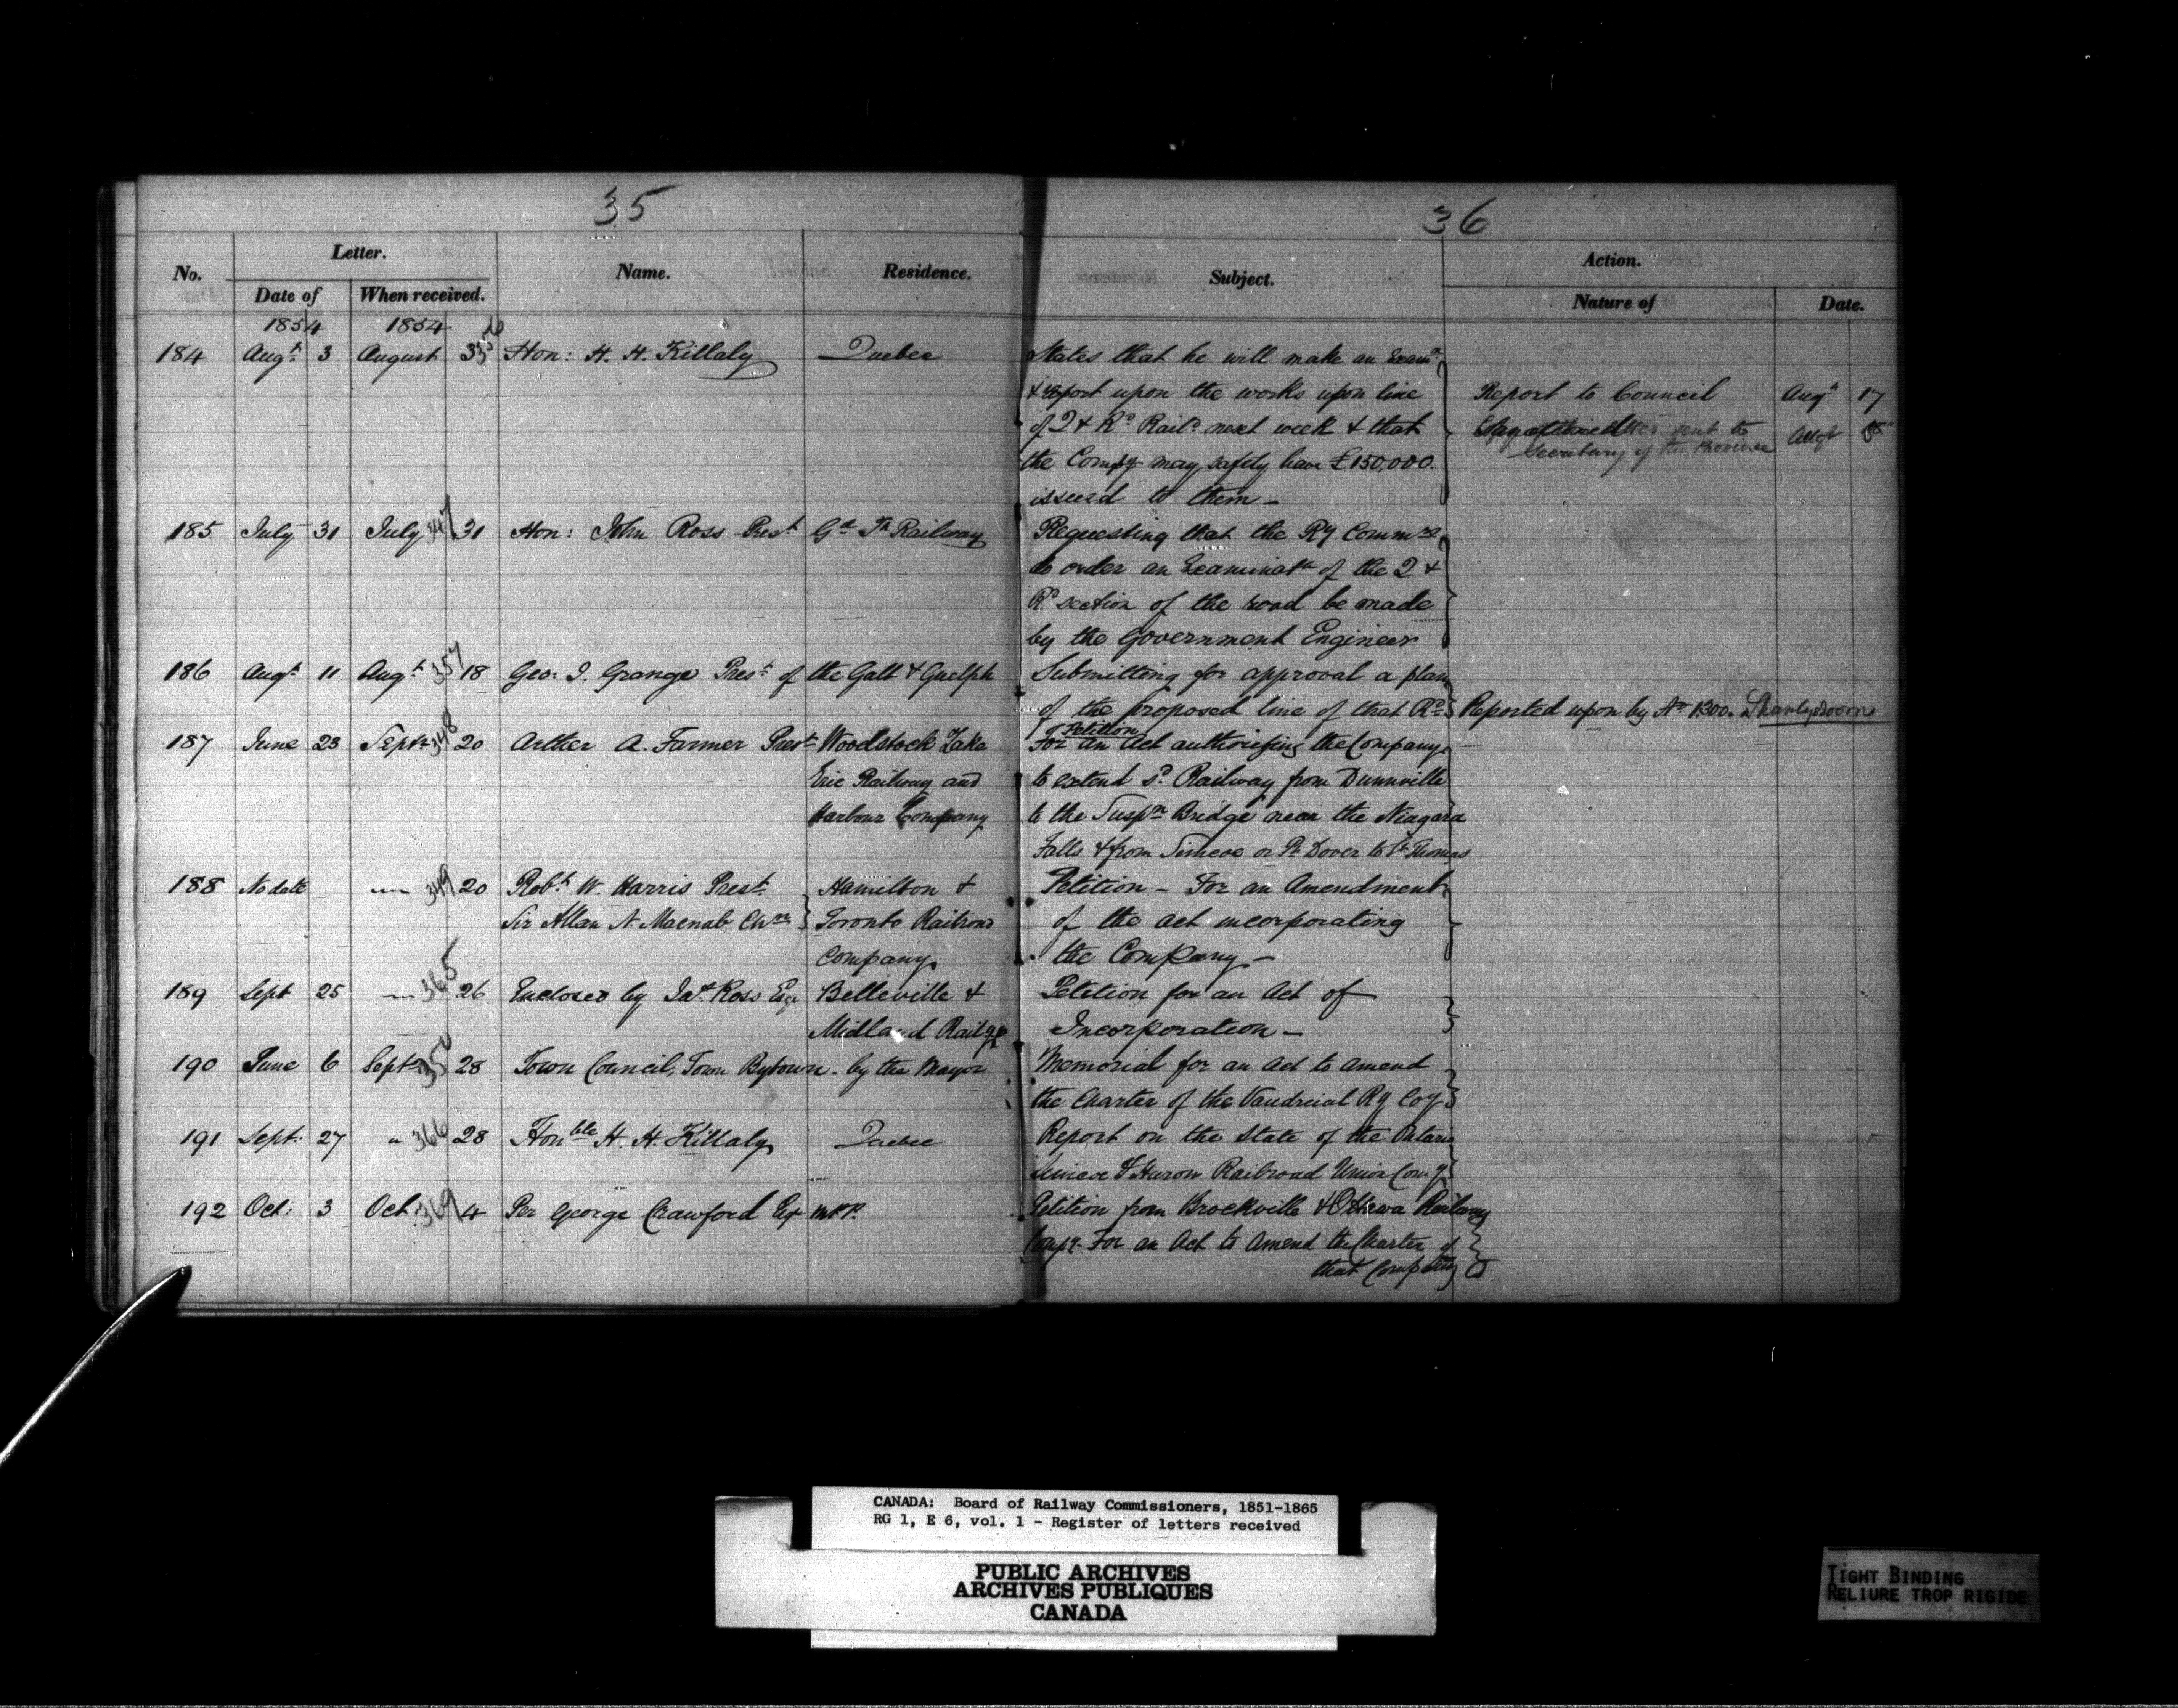 35
36
No. Letter. Name. Residence. Subject. Action.
Date of When received. Nature of Date.
1854 1854
184 Augt 3 August 3 Hon: H. H. Killaly Quebec States that he will make an Examn
& report upon the works upon line Report to Council Augt 17
of Q & Rd Raild next week & that sent to
the Compy may safely have £150,000. Secretary of the Province
issued to them -
185 July 31 July 347 31 Hon: John Ross Prest Gd Tk Railway Requesting that the Ry Commrs
do order an Examinatn of the Q &
Rd section of the road be made
by the Government Engineer
186 Augt 11 Augt 357 18 Geo: I. Grange Prest of the Galt & Guelph Submitting for approval a plan
of the proposed line of that Rd Reported upon by No 1300. Shanly's room
Petition
187 June 23 Septr 348 20 Arther A. Farmer Prest Woodstock Lake For an Act authorising the Company
Erie Railway and to extend sd Railway from Dunnville
Harbour Company to the Suspn Bridge near the Niagara
Falls & from Simcoe or Pt Dover to St Thomas
188 No date " 349 20 Robt W. Harris Prest Hamilton & Petition - For an Amendment
Sir Allan N. Macnab Chn Toronto Railroad of the act incorporating
Company the Company -
189 Sept 25 " 365 26 Enclosed by Jas Ross Esqr Belleville & Petition for an Act of
Midland Railye Incorporation -
190 June 6 Septr 350 28 Town Council, Town Bytown - by the Mayor Memorial for an Act to amend
the Charter of the Vaudreial Ry Coy
191 Sept: 27 " 366 28 Honble H. H. Killaly Quebec Report on the State of the Ontario
Simcoe & Huron Railroad Union Comy
192 Oct: 3 Oct: 369 4 Per George Crawford Esq M.P.P. Petition from Brockville & Ottawa Railway
Compy - For an Act to Amend the Charter of
that Company
CANADA: Board of Railway Commissioners, 1851-1865
RG 1, E 6, vol. 1 - Register of letters received
PUBLIC ARCHIVES
ARCHIVES PUBLIQUES
CANADA
TIGHT BINDING
RELIURE TROP RIGIDE